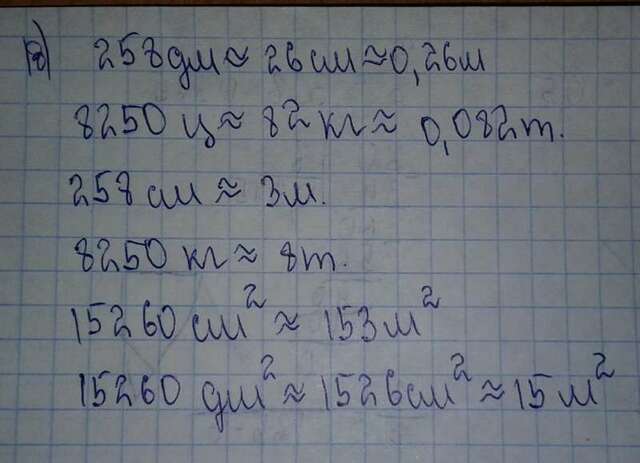 в) 258 дм ≈ 26 см ≈ 0,26 м
8250 ц ≈ 82 кг ≈ 0,082 т.
258 см ≈ 3 м.
8250 кг ≈ 8 т.
15260 см² ≈ 153 м²
15260 дм² ≈ 1526 см² ≈ 15 м²